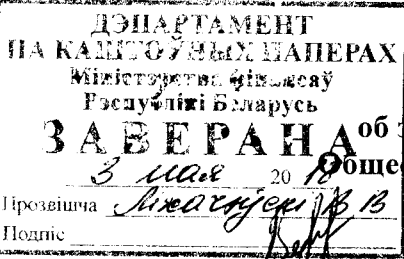 ДЭПАРТАМЕНТ
ПА КАШТОЎНЫХ ПАПЕРАХ
Міністэрства фінансаў
Рэспублікі Беларусь
ЗАВЕРАНА
об
3 мая 20
Обще
Прозвішча В В
Подпіс